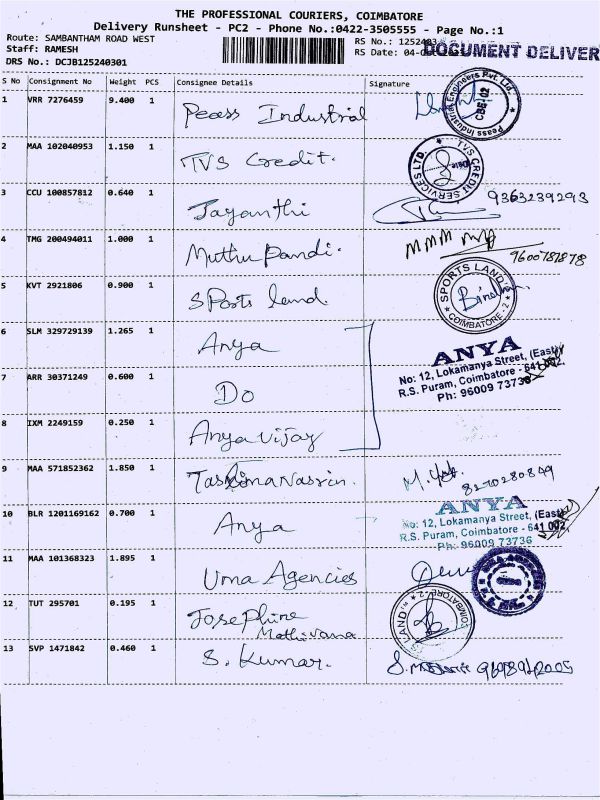 THE PROFESSIONAL COURIERS, COIMBATORE
Delivery Runsheet - PC2 - Phone No.:0422-3505555 - Page No.:1
Route: SAMBANTHAM ROAD WEST
Staff: RAMESH
DRS No.: DCJB125240301
RS No.: 1252403
RS Date: 04-
DOCUMENT DELIVER
S No Consignment No Weight PCS Consignee Details Signature
1 VRR 7276459 9.400 1 Peass Industrial
Peass Industrial Engineers Pvt. Ltd.
CBE-02
2 MAA 102040953 1.150 1 TVS Credit.
TVS CREDIT SERVICES LTD.
3 CCU 100857812 0.640 1 Jayanthi 9363239293
4 TMG 200494011 1.000 1 Muthu Pandi. 9600787878
5 KVT 2921806 0.900 1 Sports land.
SPORTS LAND
COIMBATORE-2
6 SLM 329729139 1.265 1 Anya
ANYA
No: 12, Lokamanya Street, (East)
R.S. Puram, Coimbatore - 641 002.
Ph: 96009 73736
7 ARR 30371249 0.600 1 Do
8 IXM 2249159 0.250 1 Anya Vijay
9 MAA 571852362 1.850 1 Taslima Nassrin. 8270280849
10 BLR 1201169162 0.700 1 Anya
ANYA
No: 12, Lokamanya Street, (East)
R.S. Puram, Coimbatore - 641 002.
Ph: 96009 73736
11 MAA 101368323 1.895 1 Uma Agencies
12 TUT 295701 0.195 1 Josephine
Mathivana
13 SVP 1471842 0.460 1 S. Kumar.